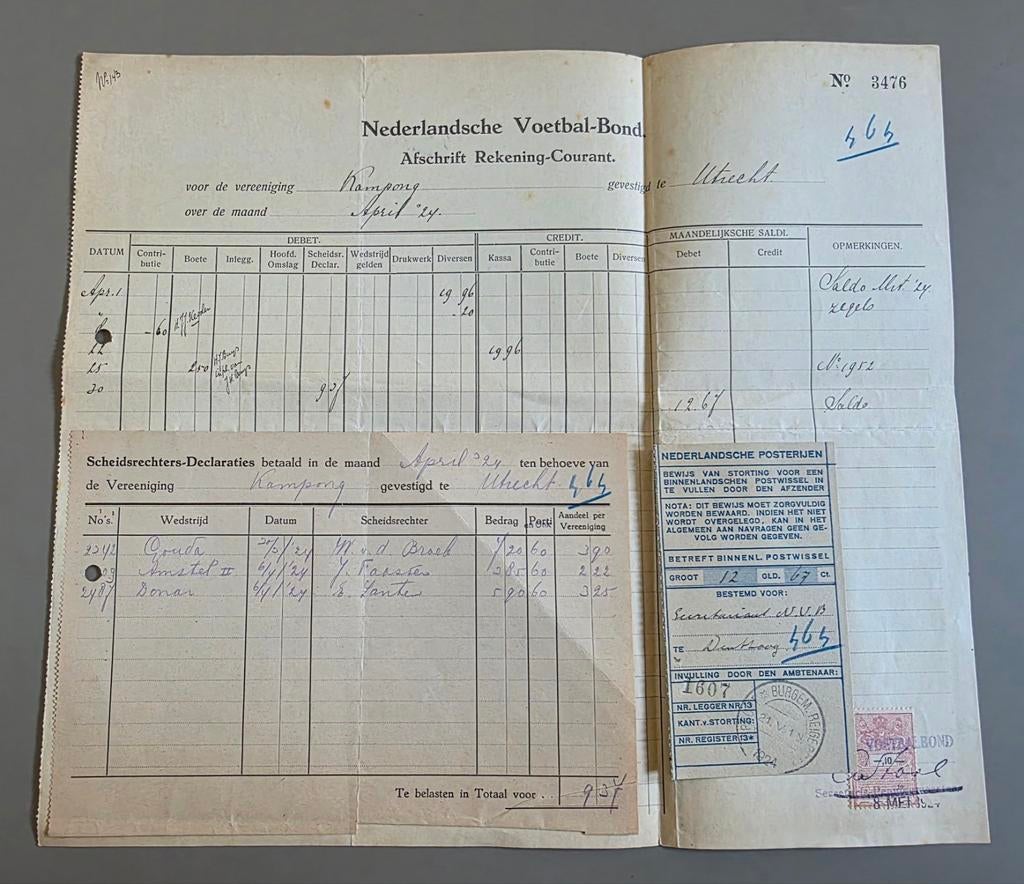 Nº 143
Nº 3476
Nederlandsche Voetbal-Bond.
464
Afschrift Rekening-Courant.
voor de vereeniging Kampong gevestigd te Utrecht
over de maand April '24.
DEBET. CREDIT. MAANDELIJKSCHE SALDI.
DATUM Contributie Boete Inlegg. Hoofd. Omslag Scheidsr. Declar. Wedstrijd gelden Drukwerk Diversen Kassa Contributie Boete Diversen Debet Credit OPMERKINGEN.
Apr. 1 19 96 Saldo Mrt '24
20 zegels
- 60
22 19 96
25 2 50 Nº 1952
30 9 37 12.67 Saldo
Scheidsrechters-Declaraties betaald in de maand April '24 ten behoeve van
de Vereeniging Kampong gevestigd te Utrecht 464
No's. Wedstrijd Datum Scheidsrechter Bedrag Porti Aandeel per Vereeniging
2342 Gouda '24 W. v. d. Broek 7 20 60 3 90
Amstel II 6/4 '24 3 85 60 2 22
2487 Donar 6/4 '24 E. 5 90 60 3 25
Te belasten in Totaal voor . . 9 37
NEDERLANDSCHE POSTERIJEN
BEWIJS VAN STORTING VOOR EEN
BINNENLANDSCHEN POSTWISSEL IN
TE VULLEN DOOR DEN AFZENDER
NOTA: DIT BEWIJS MOET ZORGVULDIG
WORDEN BEWAARD. INDIEN HET NIET
WORDT OVERGELEGD, KAN IN HET
ALGEMEEN AAN NAVRAGEN GEEN GE-
VOLG WORDEN GEGEVEN.
BETREFT BINNENL. POSTWISSEL
GROOT 12 GLD. 67 Ct.
BESTEMD VOOR:
Secretariaat N.V.B
TE Den Haag 464
INVULLING DOOR DEN AMBTENAAR:
1607
NR. LEGGER NR. 13
KANT. v. STORTING:
NR. REGISTER 13*
BURGEM. REIGER
21.V.
1924
10
VOETBALBOND
8 MEI 1924